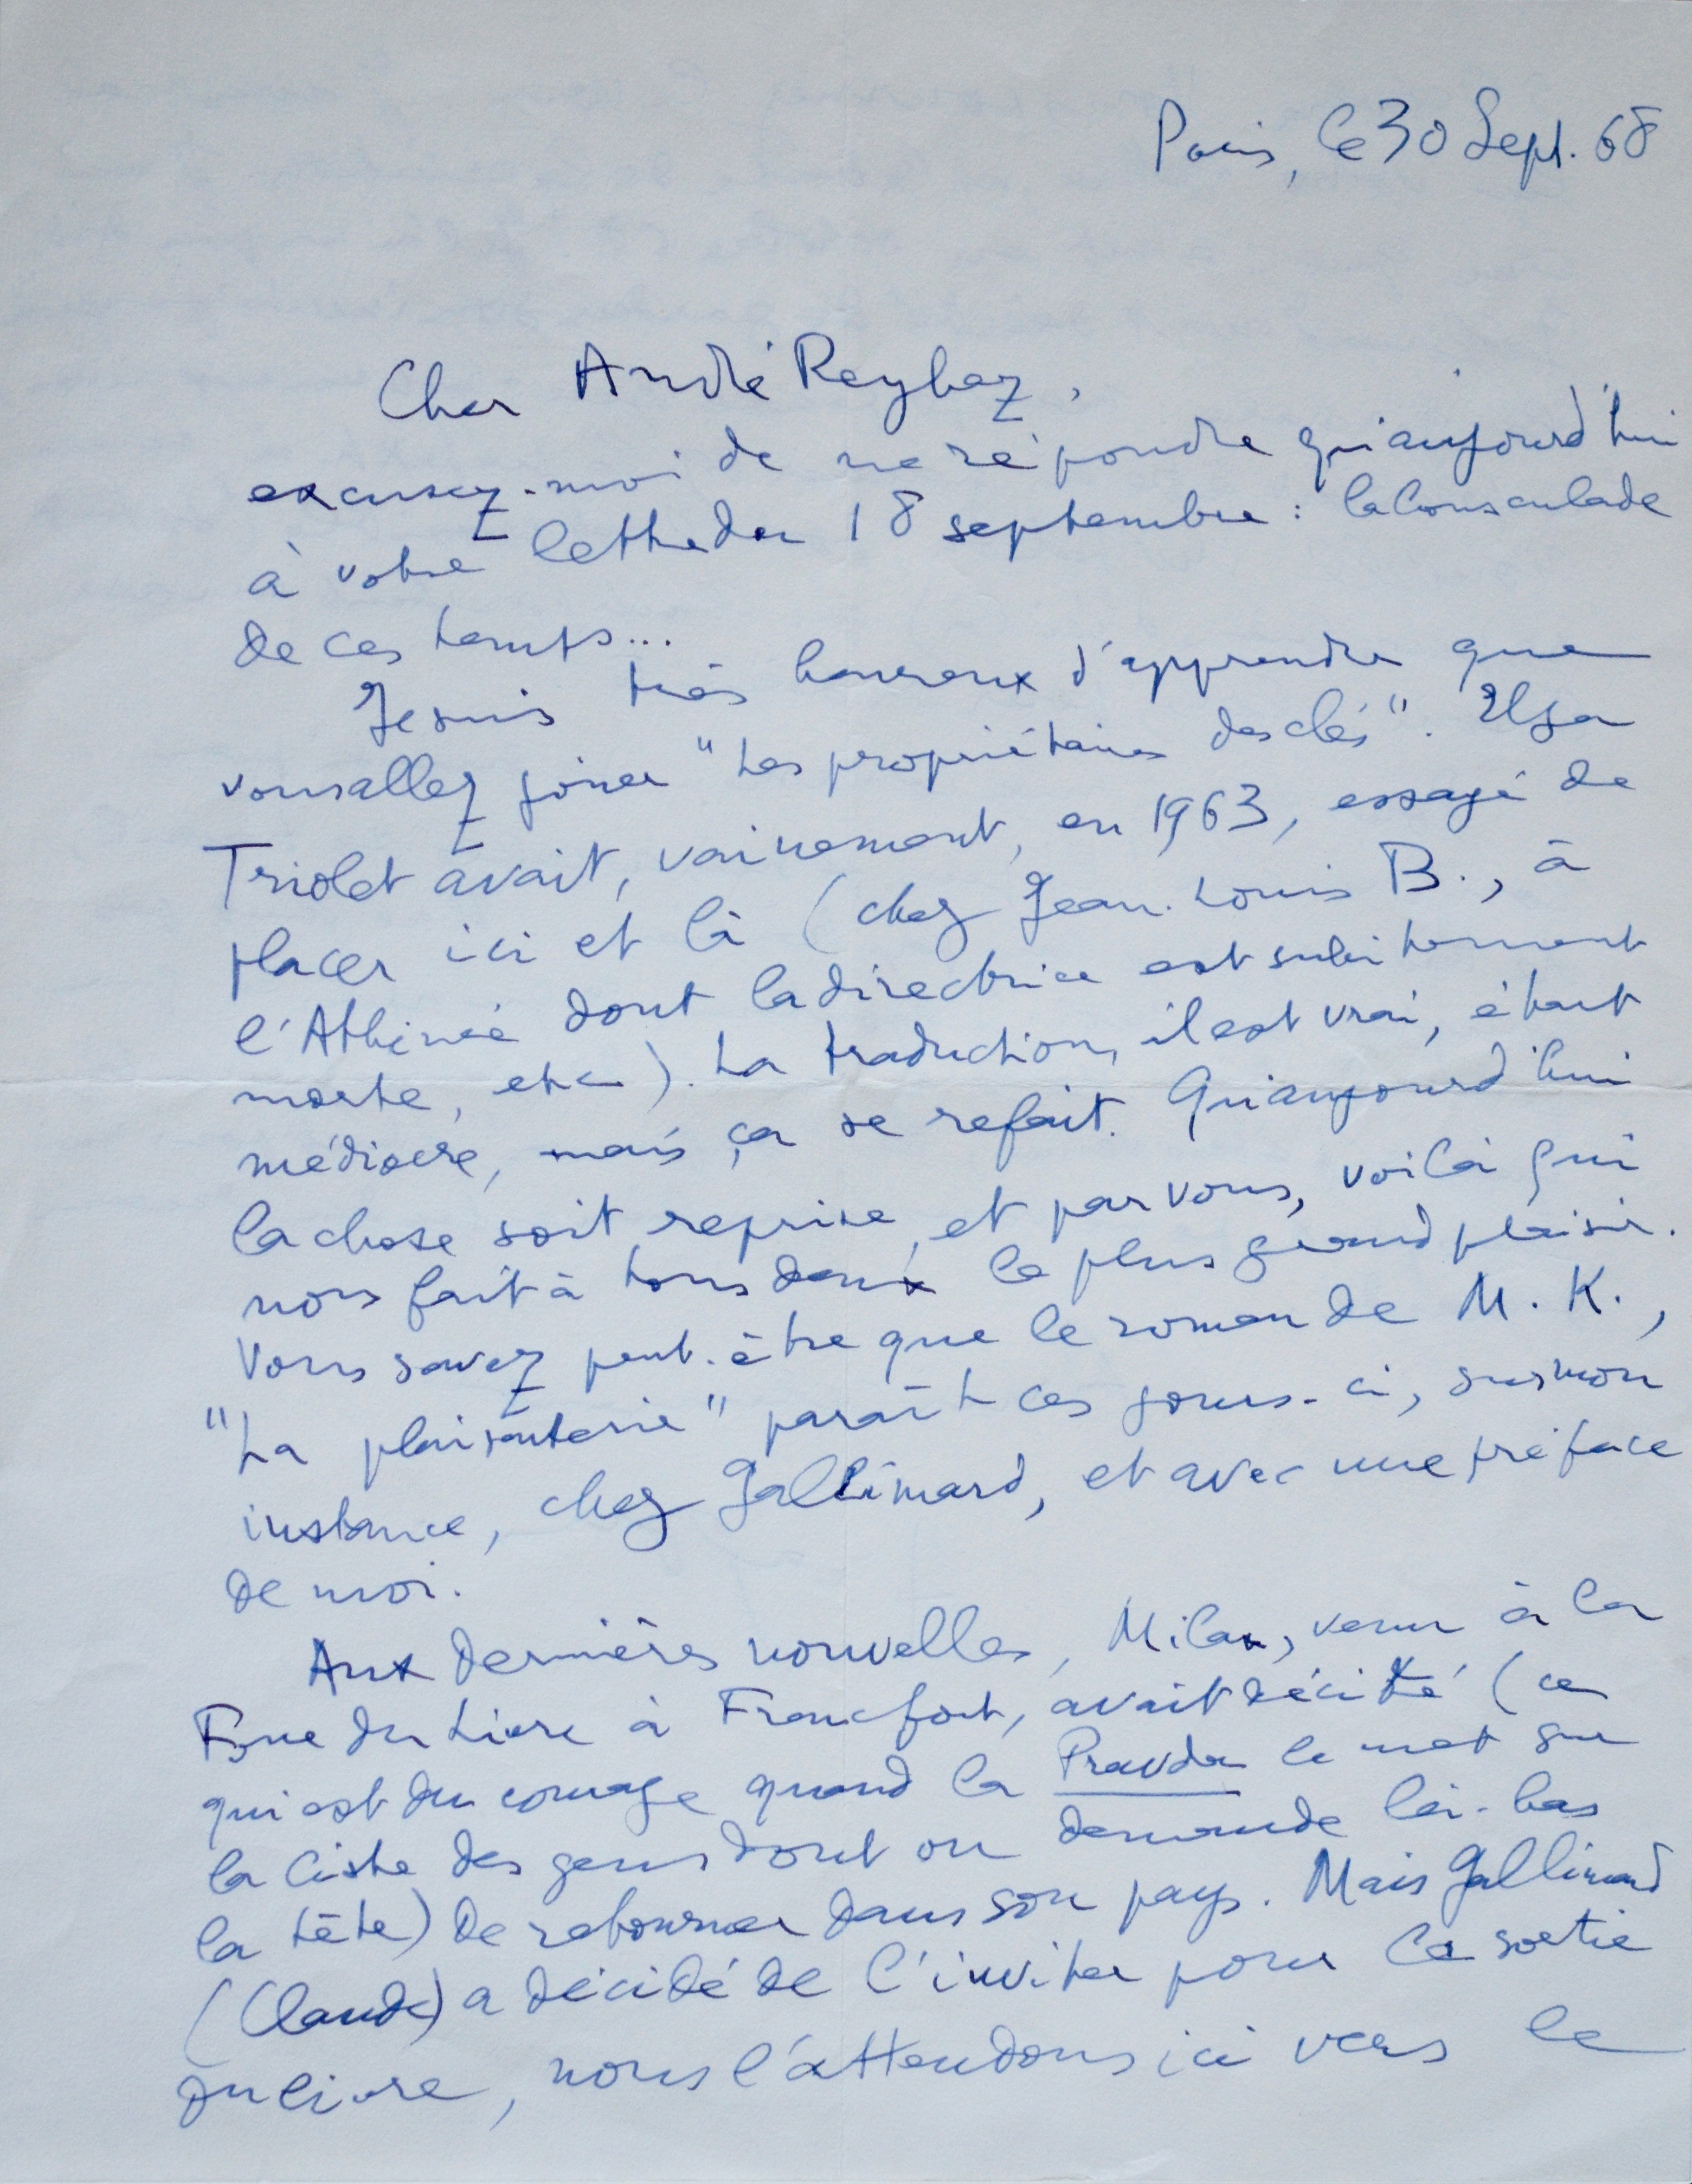 Paris, le 30 Sept. 68
Cher André Reybaz,
excusez-moi de ne répondre qu'aujourd'hui
à votre lettre du 18 septembre : la bousculade
de ces temps...
Je suis très heureux d'apprendre que
vous allez jouer "Les propriétaires des clés". Elsa
Triolet avait, vainement, en 1963, essayé de
placer ici et là (chez Jean-Louis B., à
l'Athénée dont la directrice est subitement
morte, etc). La traduction, il est vrai, était
médiocre, mais ça se refait. Qu'aujourd'hui
la chose soit reprise, et par vous, voilà qui
nous fait à tous deux le plus grand plaisir.
Vous savez peut-être que le roman de M. K.,
"La plaisanterie" paraît ces jours-ci, sur mon
instance, chez Gallimard, et avec une préface
de moi.
Aux dernières nouvelles, Milan, venu à la
Foire du Livre à Francfort, avait décidé (ce
qui est du courage quand la Pravda le met sur
la liste des gens dont on demande là-bas
la tête) de retourner dans son pays. Mais Gallimard
(Claude) a décidé de l'inviter pour la sortie
du livre, nous l'attendons ici vers le